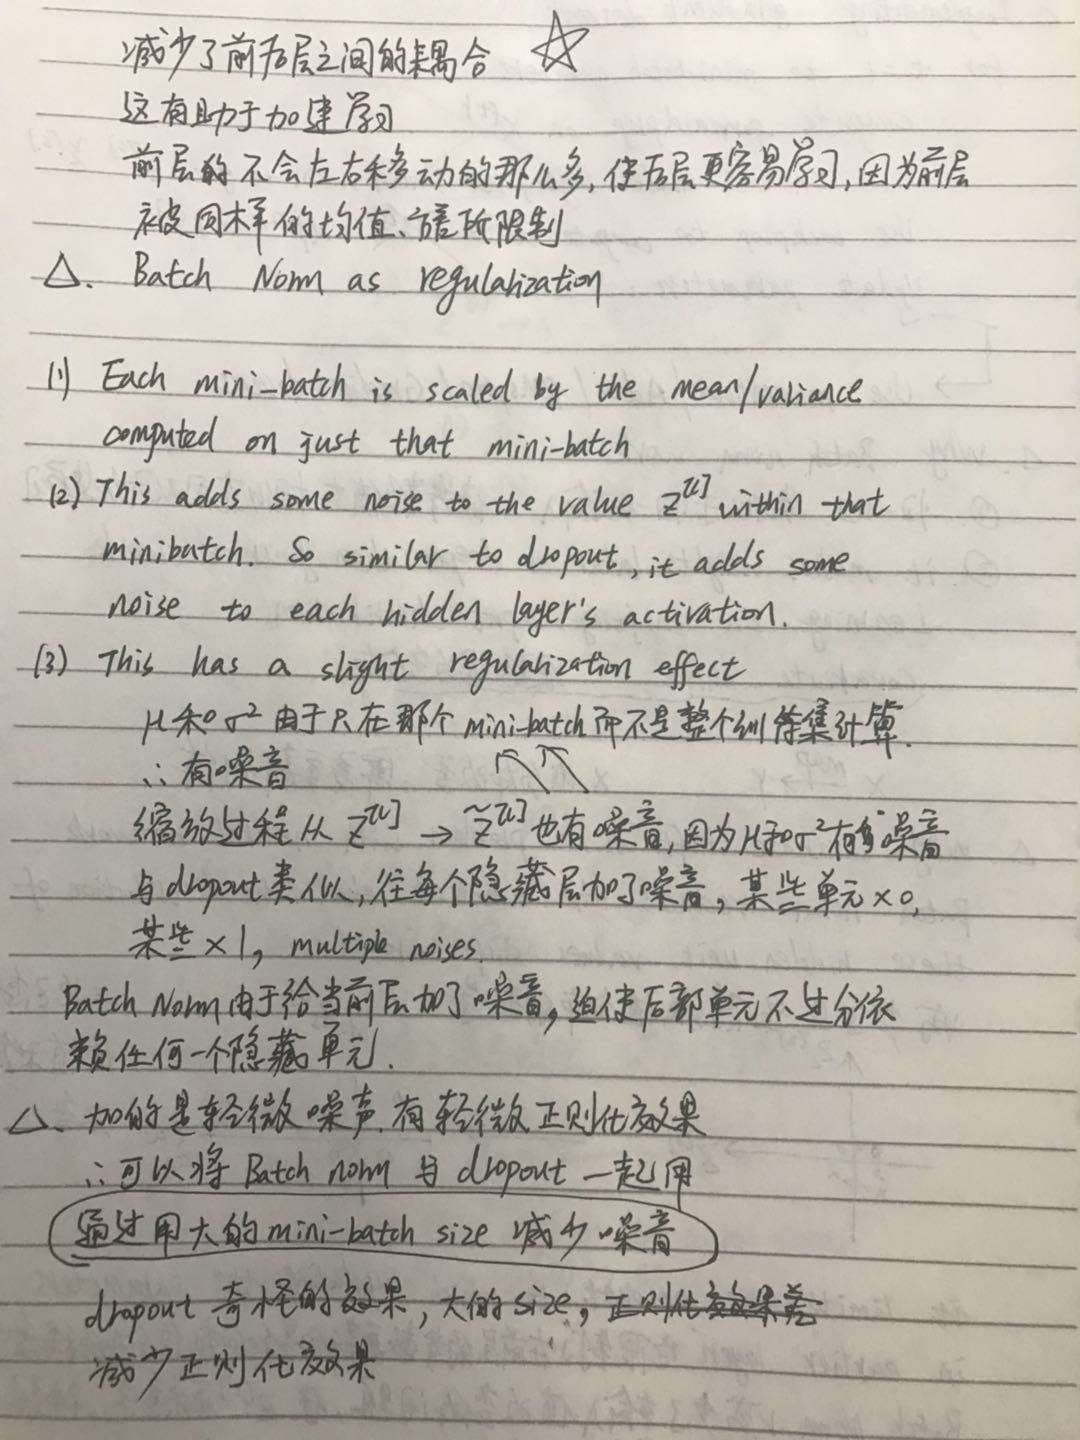 减少了前后层之间的耦合 ☆
这有助于加速学习
前层的不会左右移动的那么多,使后层更容易学习,因为前层
被同样的均值、方差所限制
△. Batch Norm as regularization
(1) Each mini-batch is scaled by the mean/variance
computed on just that mini-batch
(2) This adds some noise to the value z^[l] within that
minibatch. So similar to dropout, it adds some
noise to each hidden layer's activation.
(3) This has a slight regularization effect
μ和σ² 由于只在那个mini-batch而不是整个训练集计算.
∴有噪音
缩放过程从 Z^[l] → Z̃^[l] 也有噪音,因为μ和σ²有噪音
与dropout类似,往每个隐藏层加了噪音,某些单元×0,
某些×1, multiple noises.
Batch Norm由于给当前层加了噪音,迫使后部单元不过分依
赖任何一个隐藏单元.
△. 加的是轻微噪声.有轻微正则化效果
∴可以将 Batch norm 与 dropout 一起用
通过用大的mini-batch size 减少噪音
dropout 奇怪的效果,大的size,正则化效果差
减少正则化效果